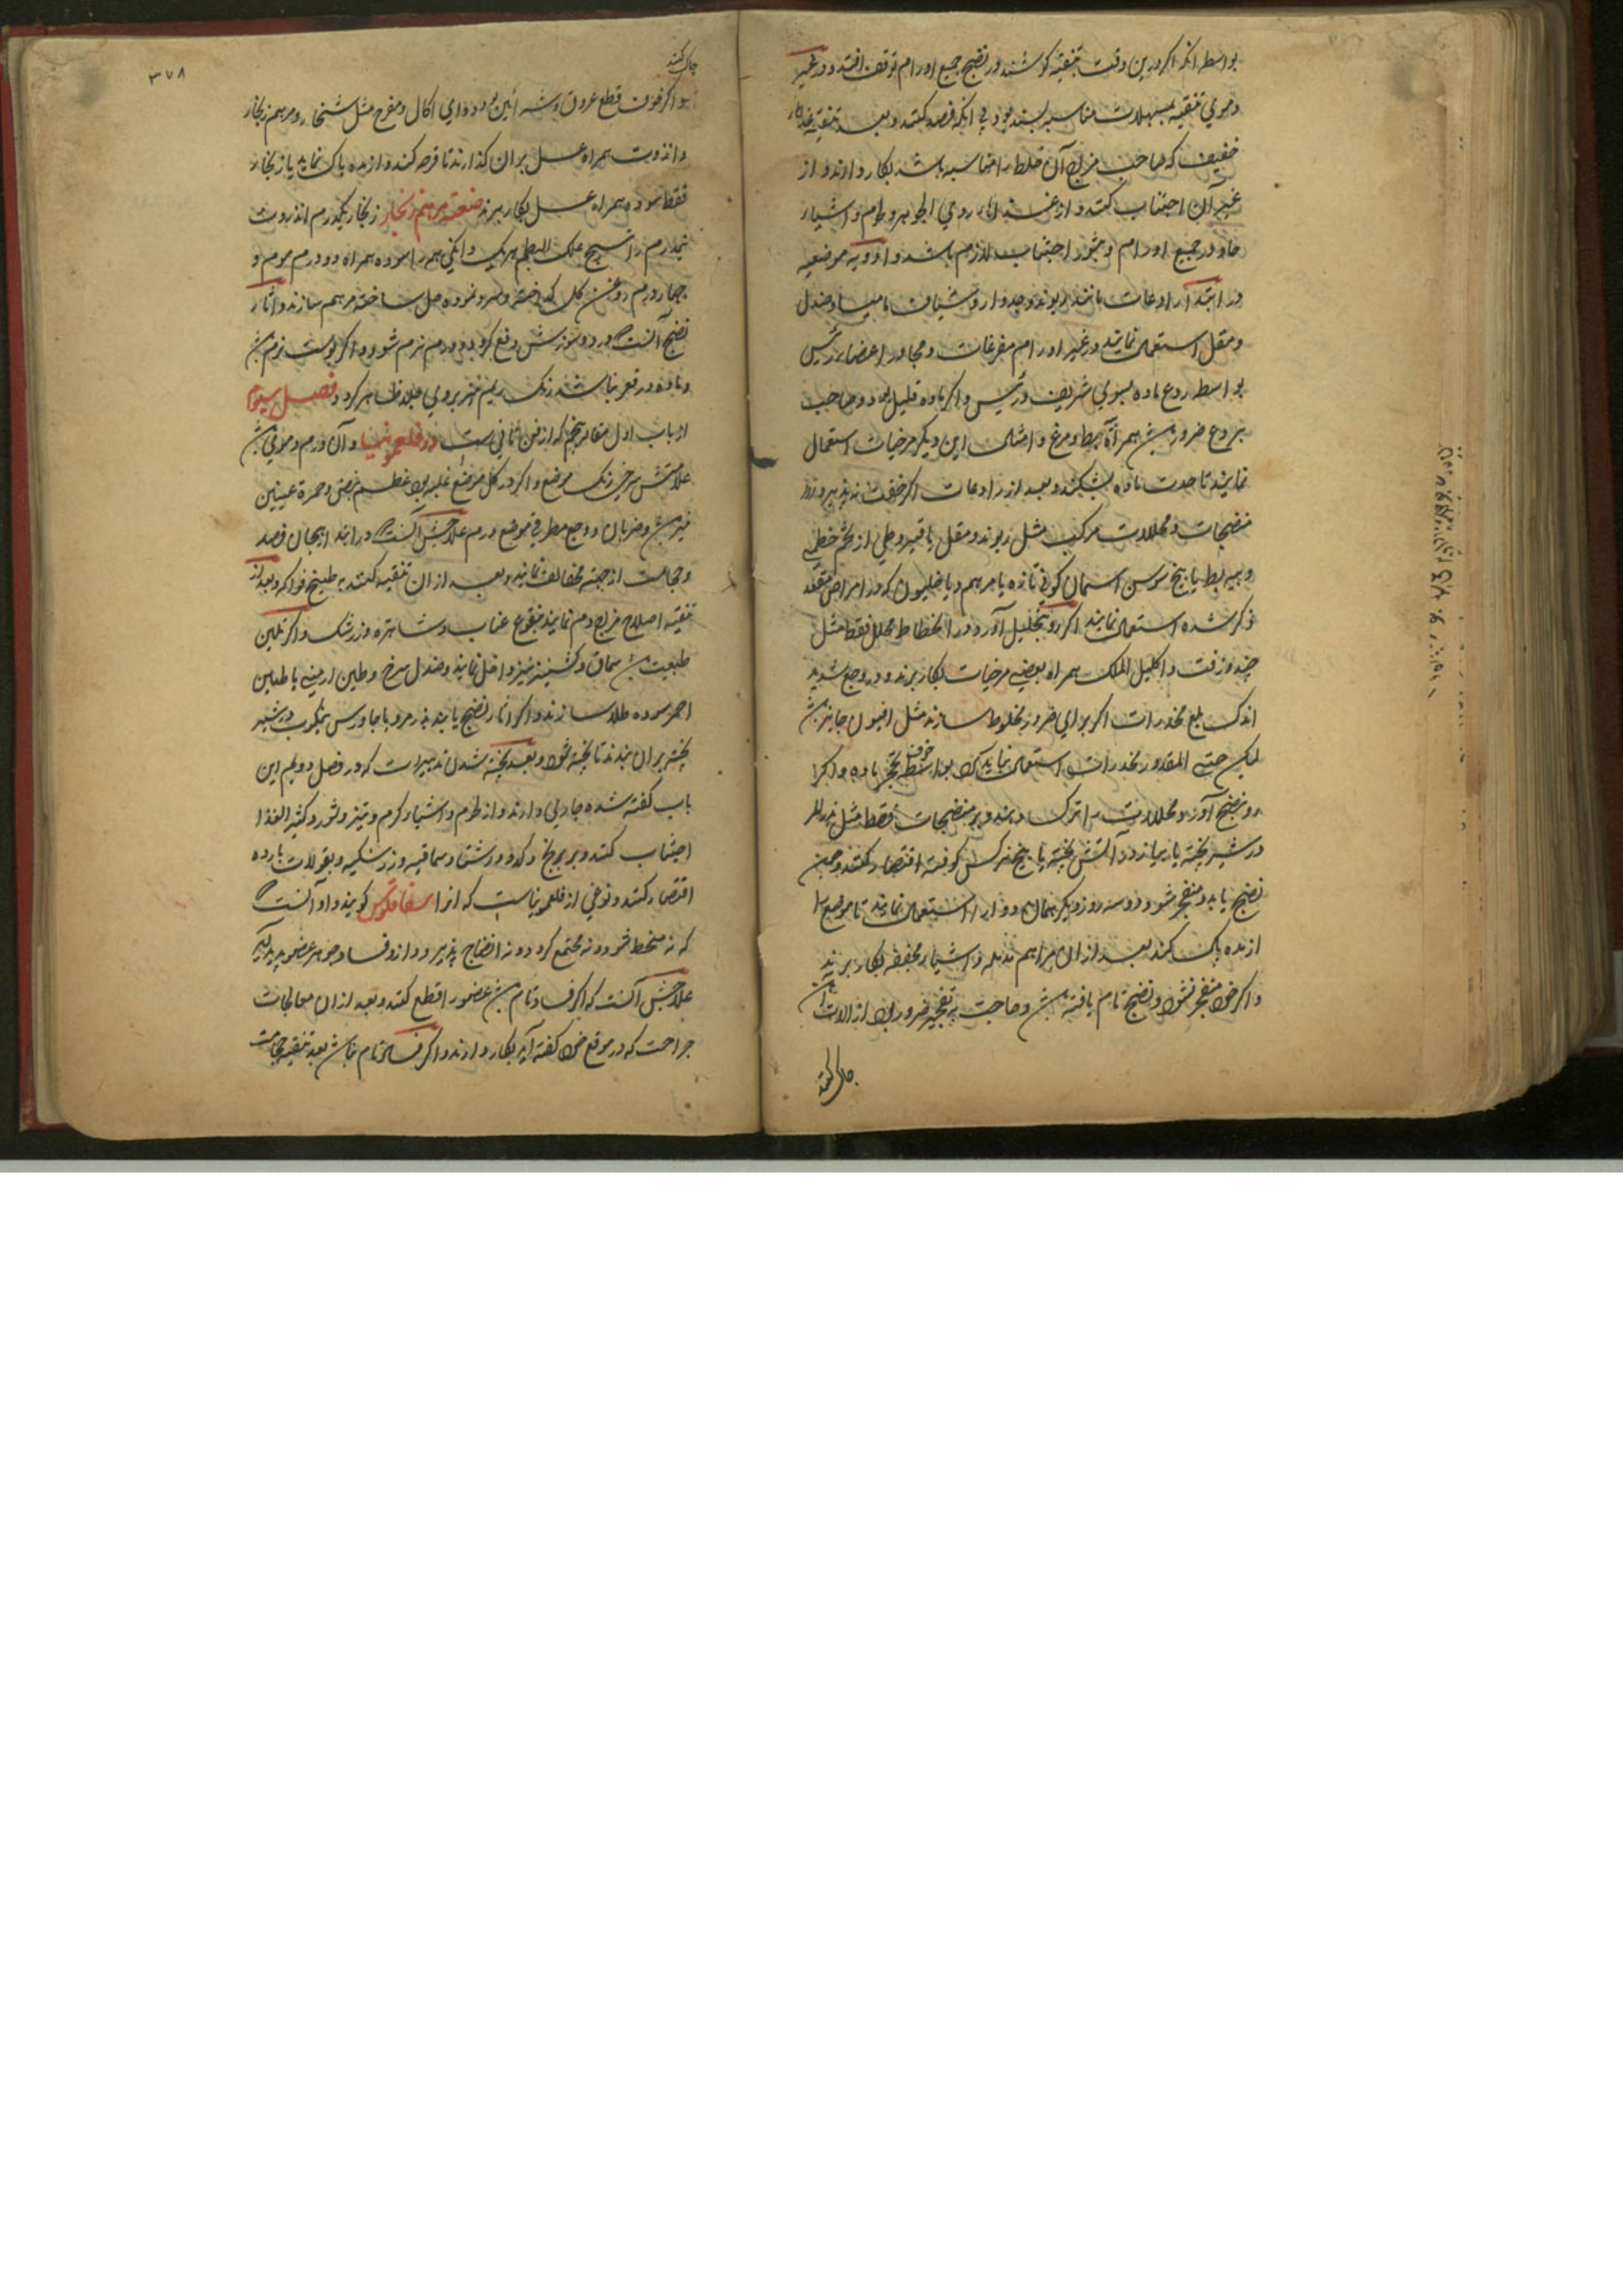 بواسطه انکه اکر درین وقت تنقیه کوشند در نضج جمیع اورام توقف افتد و در غیر
دموی تنقیه بمسهلات مناسبه بسنده بود بی انکه فصد کنند و بعد تنقیه غذای
خفیف که صاحب مزاج آن خلط را مناسب باشد بکار دارند و از
غیر آن اجتناب کنند و از غذای ردی الجوهر و طوم و اشیاء
حاد در جمیع اورام و بثور اجتناب لازم باشد و ادویه موضعیه
در ابتدا رادعات مانند ریوند و جدوار و شیاف مامیثا و صندل
و مقل استعمال نمایند در غیر اورام مفرغات و مجاور اعضاء رئیس
بواسطه ردع ماده بسوی شریف و رئیس و اکر ماده قلیل بود و صاحب
بردع ضرور باشد همراه پیه بط و مرغ و امثال این دیکر مرخیات استعمال
نمایند تا حدت ماده بشکند و بعد از رادعات اکر خفت نپذیرد
منضجات و محللات مرکب مثل ریوند و مقل با قیروطی از تخم خطمی
و پیه بط یا بیخ سوسن اسمان کونی تازه یا مرهم دیاخلیون که در امراض مقعد
ذکر شده استعمال نمایند اکر رو بتحلیل آورد در انحطاط محلل فقط مثل
و زفت و اکلیل الملک همراه بعضی مرخیات بکار برند و در وجع شدید
اندک بلع مخدرات اکر برای ضرور مخلوط سازند مثل افیون جایز باشد
لیکن حتی المقدور مخدرات استعمال نباید کرد بواسطه خوف تحجر ماده و اکر
رو بنضج آورد محللات را ترک دهند و بر منضجات فقط مثل
در شیر پخته یا پیاز در آتش پخته یا بیخ نرکس کوفته اقتصار کنند و چون
نضج یابد و منفجر شود دو سه روز دیکر همان دوا را استعمال نمایند تا موضع را
از مده پاک کند بعد از آن مراهم مدمله و اشیاء مجففه بکار برند
و اکر خود منفجر نشود و نضج تام یافته باشد و حاجت بتفجیر ضرور بود از الات آن
چاک کنند
٣٧٨
چاک کنند
و اکر خوف قطع عروق و شرائین بود دوای اکال و مقرح مثل شنجار و مرهم زنجار
و انزروت همراه عسل بران کذارند تا قرحه کند و از مده پاک نماید یا زنجار
فقط سوده همراه عسل بکار برند صنعت مرهم زنجار زنجار یکدرم انزروت
نیمدرم راتینج علک البطم هریک دانکی همه را سوده همراه دو درم موم و
چهار درم روغن کل کداخته و سرد نموده حل ساخته مرهم سازند و آثار
نضج آنست که درد و سوزش دفع کردد و ورم نرم شود و اکر پوست نرم باشد
و ماده در قعر نباشد رنک ریم نیز بروی جلد ظاهر کردد فصل سیوم
از باب اول مقاله پنجم که از فن ثانی است در فلغمونیا و آن ورم دموی باشد
علامتش سرخی رنک موضع و اکر در کل موضع غلبه بود عظم نبض و حمرة عینین
نیز باشد و ضربان و وجع مفرط در موضع ورم علاجش آنست که در ابتدا همان فصد
و حجامت از جهة مخالف نمایند و بعد از ان تنقیه کنند به طبیخ فواکه و بعد از
تنقیه اصلاح مزاج دم نمایند بنقوع عناب و شاهتره و زرشک و اکر تلیین
طبیعت باشد سماق و کشنیز نیز داخل نمایند و صندل سرخ و طین ارمنی با طین
احمر سوده طلا سازند و اکر آثار نضج یابند بذر مرو با جاورس نیمکوب در شیر
پخته بران بندند تا پخته شود و بعد پخته شدن تدبیرات که در فصل دویم این
باب کفته شده جاری دارند و از طوم و اشیاء کرم و تیز و شور و کثیر الغذا
اجتناب کنند و بر برنج و کدو و رشته و سماقیه و زرشکیه و بقولات بارده
اقتصار کنند و نوعی از فلغمونیاست که انرا سفاقلوس کویند و او آنست
که نه منحط شود و نه مجتمع کردد و نه انضاج پذیرد و از و فساد جوهر عضو پدید آید
علاجش آنست که اکر فساد تام باشد عضو را قطع کنند و بعد از ان معالجات
جراحت که در موقع خود کفته آید بکار دارند و اکر فساد تام نباشد بعد تنقیه حجامت